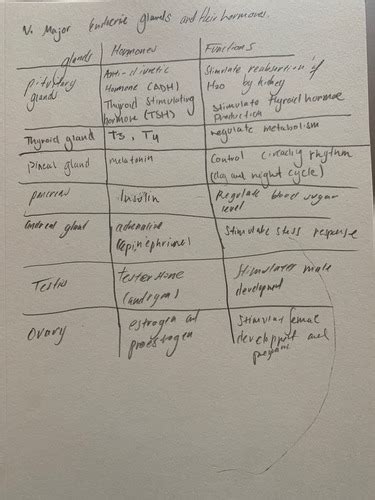 V. Major Endocrie glands and their hormones.
glands Hormones Functions
pituitary glands
Anti-diuretic
Hormone (ADH)
Thyroid Stimulating
hormone (TSH)
Stimulate reabsorption of
H2O by kidney
Stimulate thyroid hormoe
production
Thyroid gland T3, T4 regulate metabolism
Pineal gland melatonin Control rhythm
(day and night cycle)
pancreas Insulin Regulate blood sugar
level
gland adrenaline Stimulate stess response
(epinephrine)
Testis male
development
Ovary estrogen and
development and